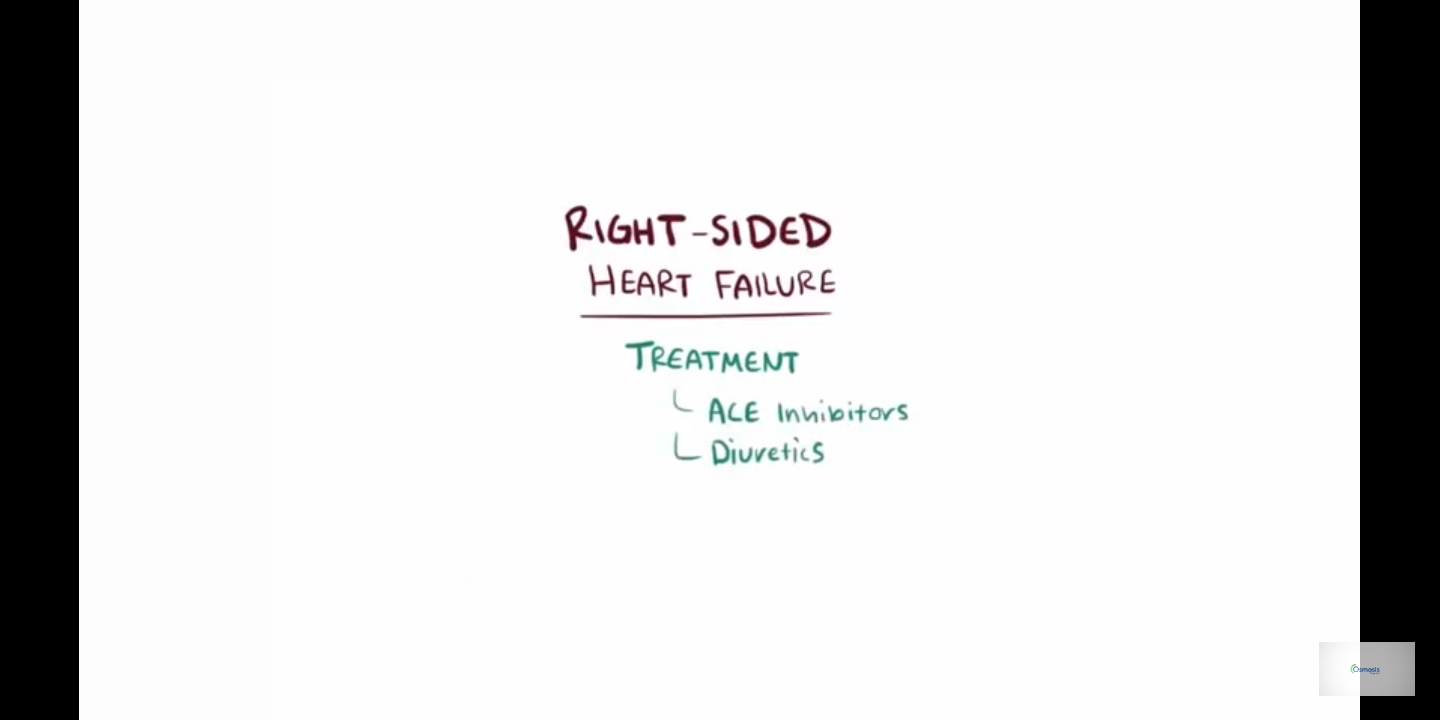 RIGHT-SIDED
HEART FAILURE
TREATMENT
ACE Inhibitors
Diuretics
Osmosis